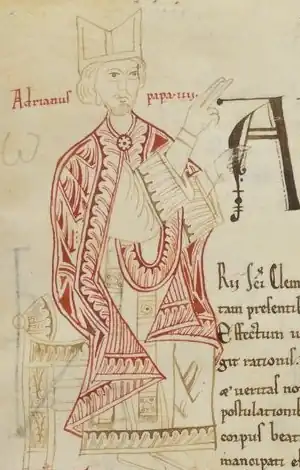 Adrianus papa·iiii·
A
Rij S̄c̄i Clem
tam presentib
Effectum u
git rationis.
æ ueritas no
postulationib
corpus beat
mancipati et